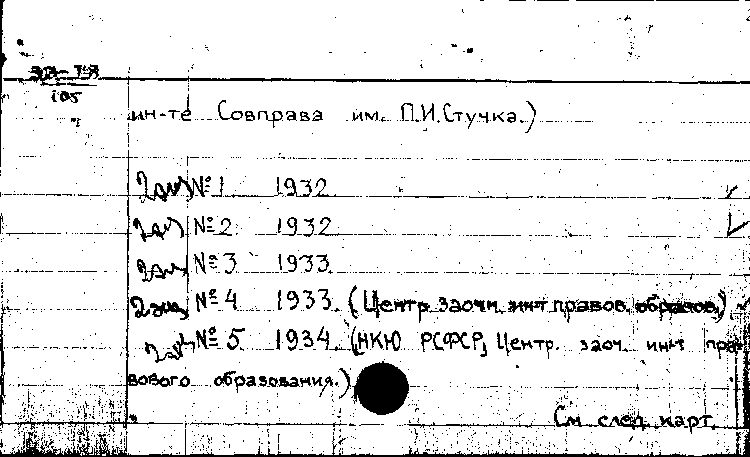 105
ин-те Совправа им. П.И.Стучка.)
2 экз № 1 1932
2 экз № 2 1932
2 экз № 3 1933
2 экз № 4 1933. (Центр. заочн. инт правов. образов.)
2 экз № 5 1934. (НКЮ РСФСР, Центр. заоч. инт пра-
вового образования.)
См. след. карт.